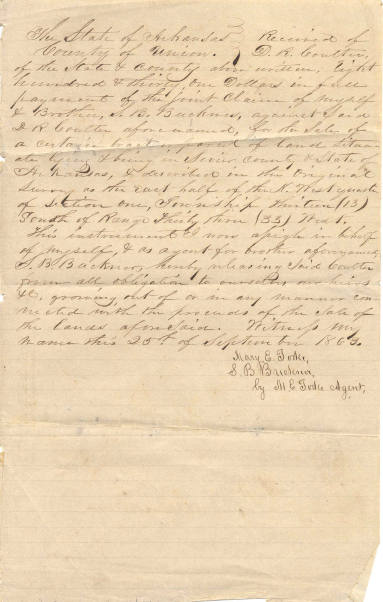 The State of Arkansas } Received of
County of Union. } D. R. Coulter,
of the State & County above written, Eight
hundred & thirty, one Dollars in full
payment of the joint Claim of myself
& Brother, S. B. Buckner, against said
D R Coulter afore named, for the Sale of
a certain tract or parcel of land situ
ate lying & being in Sevier county & State of
Arkansas, & described in the Original
Survey as the East half of the N. West quarter
of Section One, Township thirteen (13)
South of Range Thirty three (33) West.
This instrument I now assign in behalf
of myself, & as agent for brother aforenamed,
S. B. Buckner, hereby releasing said Coulter
from all obligation to ourselves our heirs
&c, growing out of or in any manner con
nected with the proceeds of the Sale of
the lands aforesaid. Witness my
name this 25th of September 1863.
Mary E.
S. B. Buckner,
by M E Agent,